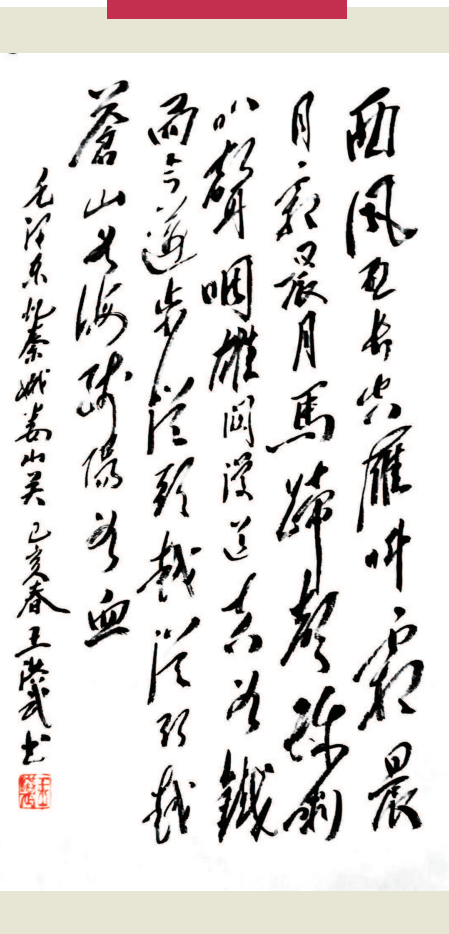 西風烈長空雁叫霜晨
月霜晨月馬蹄聲碎喇
叭聲咽雄關漫道真如鐵
而今邁步從頭越從頭越
蒼山如海殘陽如血
毛泽东忆秦娥娄山关 己亥春王武书